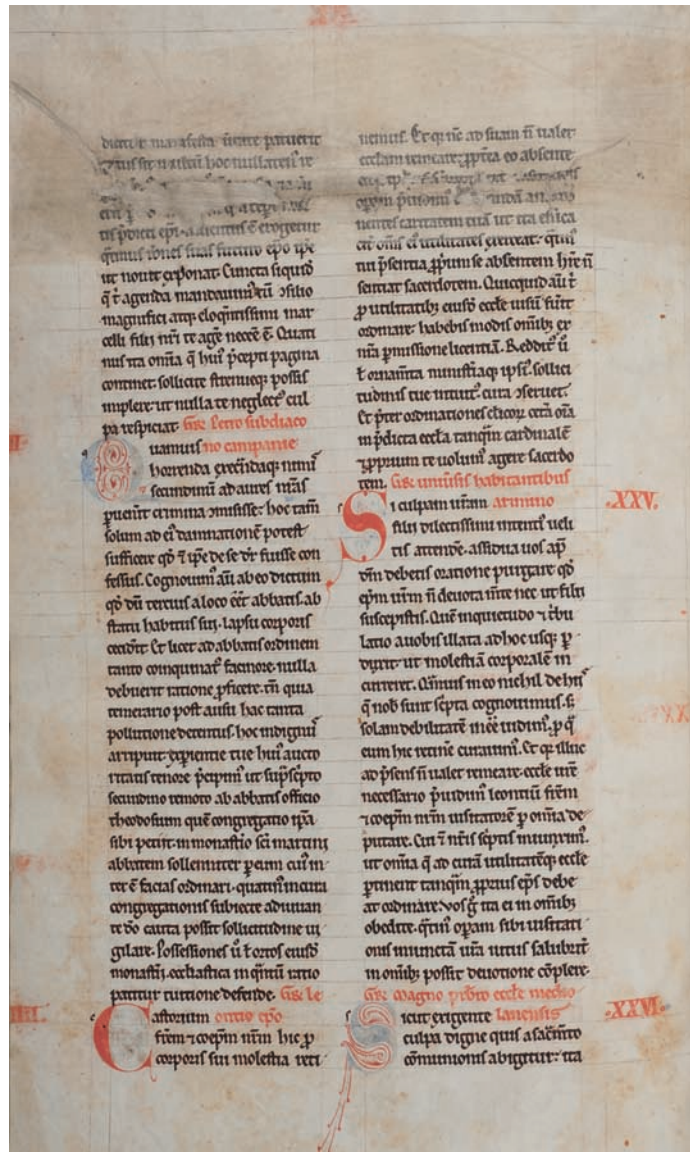 XXV
dicitur manifesta ueritate patuerit
hoc nullaten᷒ re
tis p̄dicti ep̄i adientis ē erogetur
q̄tinus rōnes suas futuro ep̄o ip̄e
ut nouit exponat. Cuncta siquid̄
q̄ t̄ agenda mandauim᷒ cū ꝯsilio
magnifici atq; eloq̄ntissimi mar
celli filii nr̄i te agē necē ē. Quati
nus ita om̄ia q̄ hui᷒ p̄cepti pagina
continet. sollicite strenueq; possis
implere. ut nulla te neglect᷒ cul
pa respiciat. Gꝶ. Petro subdiaco
uamuis no campanie
horrenda grecūdaq; nimis
secundinū ad aures n̄ras
puenit crimina ꝯmisisse. hoc tam̄
solum ad ei᷒ damnationē potest
sufficere qd̄ ⁊ ip̄e de se dr̄ fuisse con
fessus. Cognouim᷒ aū ab eo dictum
qd̄ dū tercius a loco eēt abbatis. ab
statu habitus sui. lapsu corporis
cecidit. Et licet ad abbatis ordinem
tanto coinquinat᷒ facinore. nulla
debuerit ratione ꝓficere. tn̄ quia
temerario post ausu hac tanta
pollutione detentus. hoc indign᷒
arripuit. expientie tue hui᷒ aucto
ritatis tenore p̄cipim᷒ ut sup̄sc̄pto
secundino remoto ab abbatis officio
theodosium quē congregatio ip̄a
sibi petiit. in monastio sc̄i martini
abbatem sollenniter ꝑ eum cui᷒ in
ter ē facias ordinari. quatin᷒ in cura
congregationis subiecte adiuuan
te dō cauta possit sollicitudine ui
gilare. Possessiones ū t̄ ortos eiusd̄
monastīi. ecclastica in q̄ntū ratio
patitur tuitione defende. Gꝶ le
Castorium ontio ep̄o
frēm ⁊ coep̄m nr̄m hic ꝓ
corporis sui molestia reti
nemus. Et q; nc̄ ad suam n̄ ualet
eccl̄am remeare. ꝓpt̄ea eo absente
uentes caritatem tuā ut ita effica
cit᷒ om̄s ei᷒ utilitates exerceat. q̄tin᷒
tui p̄sentia ꝓprium se absentem hr̄e n̄
sentiat sacerdotem. Quicquid aū t̄
ꝓ utilitatib; eiusd̄ eccl̄e uisū fūit
ordinare. habebis modis om̄ib; ex
nr̄a ꝑmissione licentiā. Reddit᷒ ū
t̄ ornam̄ta ministiaq; ipsi᷒. sollici
tudinis tue intuit᷒. cura ꝯseruet.
Et p̄ter ordinationes clicor̄ cetā om̄ia
in p̄dicta eccl̄a tanq̄m cardinalē
⁊ ꝓprium te uolum᷒ agere sacerdo
tem. Gꝶ uniūsis habitantibus
Si culpam ur̄am arimino XXV.
filii dilectissimi intenti᷒ ueli
tis attendē. assidua uos ap̄
dm̄ debetis oratione purgare qd̄
ep̄m ur̄m n̄ deuota m̄te nec ut filii
suscepistis. Quē inquietudo ⁊ t̄bu
latio a uobis illata ad hoc usq; ꝑ
duxit. ut molestiā corporalē in
curreret. Qm̄uis in eo nichil de his
q̄ nob̄ sunt sc̄pta cognouimus. s;
solam debilitatē inēē uidim᷒. ꝑ q̄
eum hic retinē curauim᷒. Et q; illuc
ad p̄sens n̄ ualet remeare. eccl̄e ur̄e
necessario p̄uidim᷒ leontiū frēm
⁊ coep̄m nr̄m uisitatorē ꝑ om̄ia de
putare. Cui ⁊ nr̄is sc̄ptis iniunxim᷒.
ut om̄ia q̄ ad curā utilitatēq; eccl̄e
ꝑtinent tanq̄m ꝓprius ep̄s debe
at ordinare. Vos ḡ ita ei in om̄ib;
obedite. q̄tin᷒ opam sibi uisitati
onis iniunctā ur̄a uirtus salubrit̄
in om̄ib; possit deuotione cōplere.
Gꝶ magno pr̄bīto eccl̄e medio
Sicut exigente lanensis XXVI.
culpa digne quis a sac̄mto
cōmunionis abigitur. ita